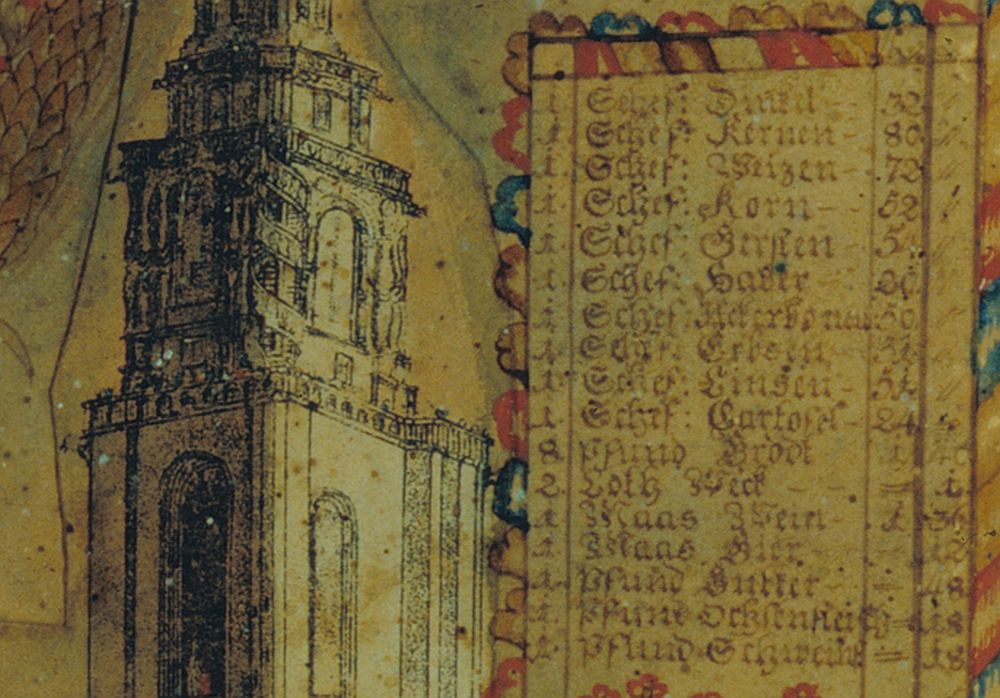 1. Schef: Dinkel - 32 "
1. Schef: Kernen - 80 "
1. Schef: Weizen - 72 "
1. Schef: Korn - - 52 "
1. Schef: Gersten 54 "
1. Schef. Haber
1. Schef: Ackerbonen 50 "
1. Schef: Erbsen
1. Schef: Linsen - 51 "
1. Schef: Cartofel 24 "
8 Pfund Brodt 1
2. Loth Weck - - = 1
1 Maas Wein - 1 36
1. Maas Bier - - 12
1. Pfund Butter - = 48
1. Pfund Ochsenfleisch = 18
1 Pfund Schwein = 18